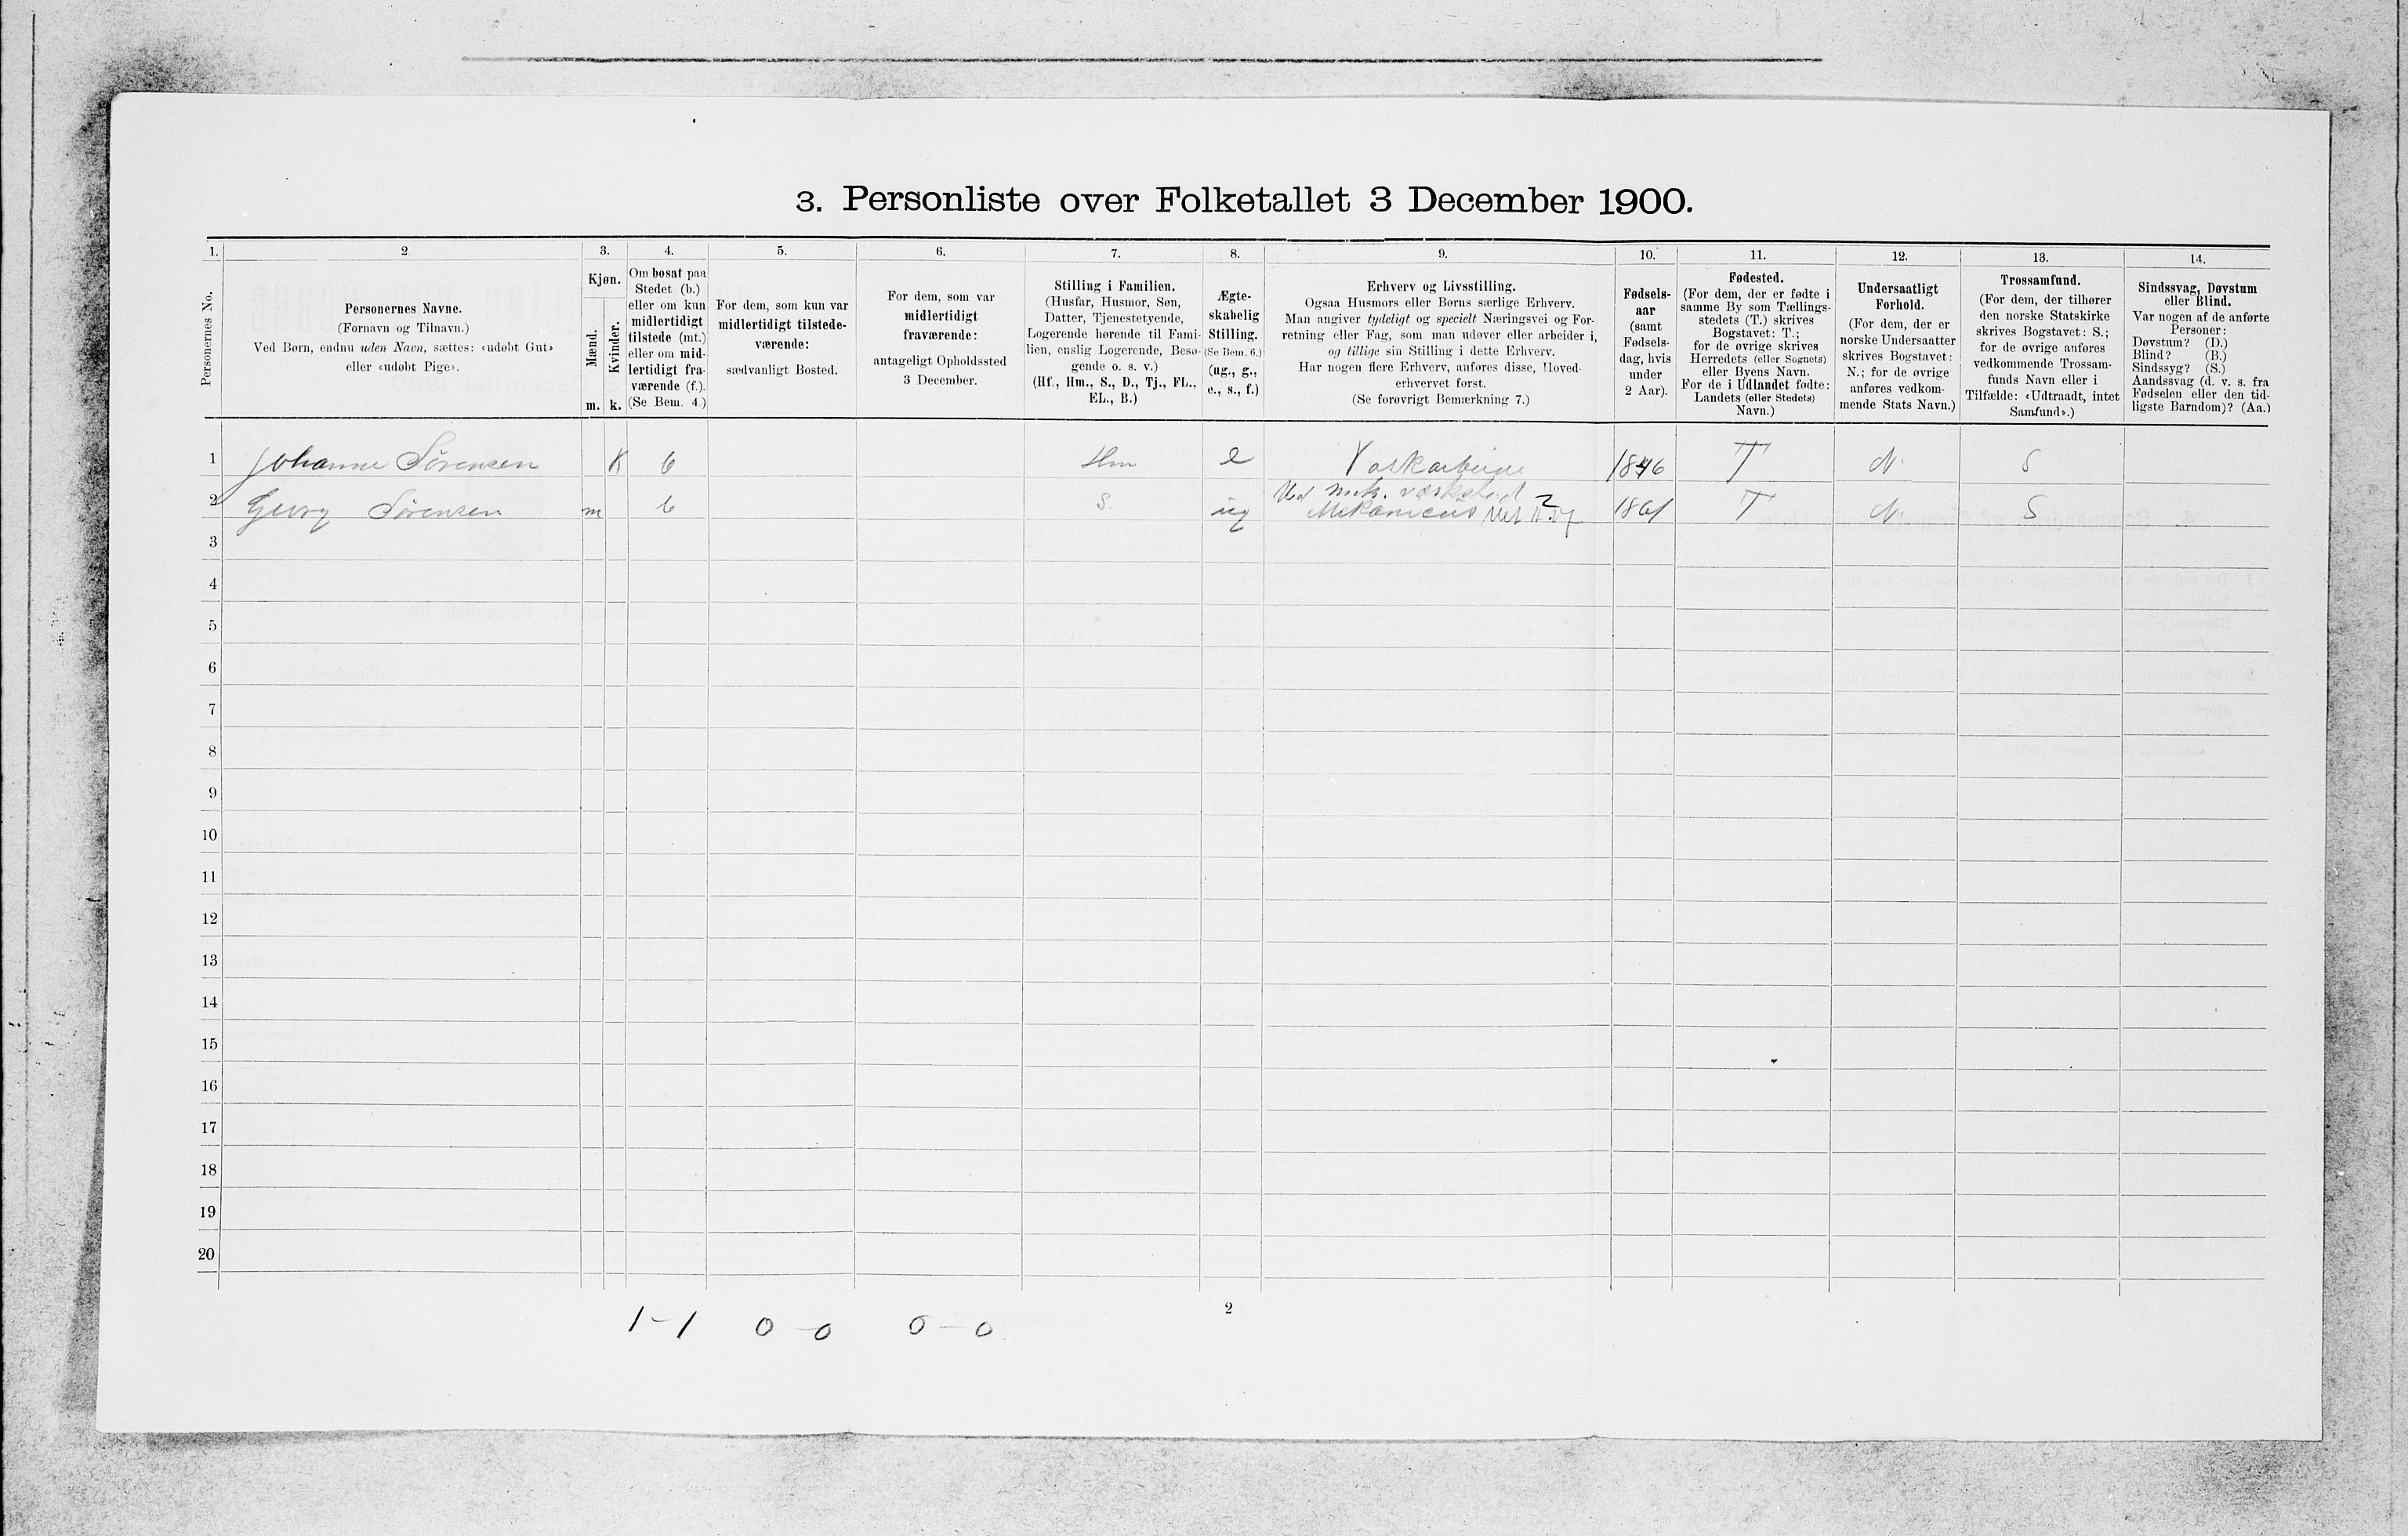 3. Personliste over Folketallet 3 December 1900.
1. 2 3. 4. 5. 6. 7. 8. 9. 10. 11. 12. 13. 14.
Personernes No.
Personernes Navne.
(Fornavn og Tilnavn.)
Ved Børn, endnu uden Navn, sættes: «udøbt Gut»
eller «udøbt Pige».
Kjøn.
Mænd.
Kvinder.
m. k.
Om bosat paa
Stedet (b.)
eller om kun
midlertidigt
tilstede (mt.)
eller om mid-
lertidigt fra-
værende (f.).
(Se Bem. 4.)
For dem, som kun var
midlertidigt tilstede-
værende:
sædvanligt Bosted.
For dem, som var
midlertidigt
fraværende:
antageligt Opholdssted
3 December.
Stilling i Familien.
(Husfar, Husmor, Søn,
Datter, Tjenestetyende,
Logerende hørende til Fami-
lien, enslig Logerende, Besø-
gende o. s. v.)
(Hf., Hm., S., D., Tj., FL.,
EL., B.)
Ægte-
skabelig
Stilling.
(Se Bem. 6.)
(ug., g.,
e., s., f.)
Erhverv og Livsstilling.
Ogsaa Husmors eller Børns særlige Erhverv.
Man angiver tydeligt og specielt Næringsvei og For-
retning eller Fag, som man udøver eller arbeider i,
og tillige sin Stilling i dette Erhverv.
Har nogen flere Erhverv, anføres disse, Hoved-
erhvervet først.
(Se forøvrigt Bemærkning 7.)
Fødsels-
aar
(samt
Fødsels-
dag, hvis
under
2 Aar).
Fødested.
(For dem, der er fødte i
samme By som Tællings-
stedets (T.) skrives
Bogstavet: T.;
for de øvrige skrives
Herredets (eller Sognets)
eller Byens Navn.
For de i Udlandet fødte:
Landets (eller Stedets)
Navn.)
Undersaatligt
Forhold.
(For dem, der er
norske Undersaatter
skrives Bogstavet:
N.; for de øvrige
anføres vedkom-
mende Stats Navn.)
Trossamfund.
(For dem, der tilhører
den norske Statskirke
skrives Bogstavet: S.;
for de øvrige anføres
vedkommende Trossam-
funds Navn eller i
Tilfælde: «Udtraadt, intet
Samfund».)
Sindssvag, Døvstum
eller Blind.
Var nogen af de anførte
Personer:
Døvstum? (D.)
Blind? (B.)
Sindssyg? (S.)
Aandssvag (d. v. s. fra
Fødselen eller den tid-
ligste Barndom)? (Aa.)
1 Johanne Sørensen K b Hm e 1846 T N. S
Ved mek. værksted
2 Georg Sørensen m b S. ug Mekanicus 2 T N. S
3
4
5
6
7
8
9
10
11
12
13
14
15
16
17
18
19
20
2
1-1 0-0 0-0